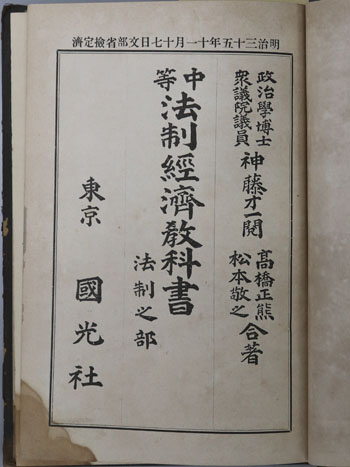 明治三十五年十一月十七日文部省檢定濟
政治學博士
衆議院議員
神藤才一閱
高橋正熊
松本敬之
合著
中等
法制經濟教科書
法制之部
東京
國光社